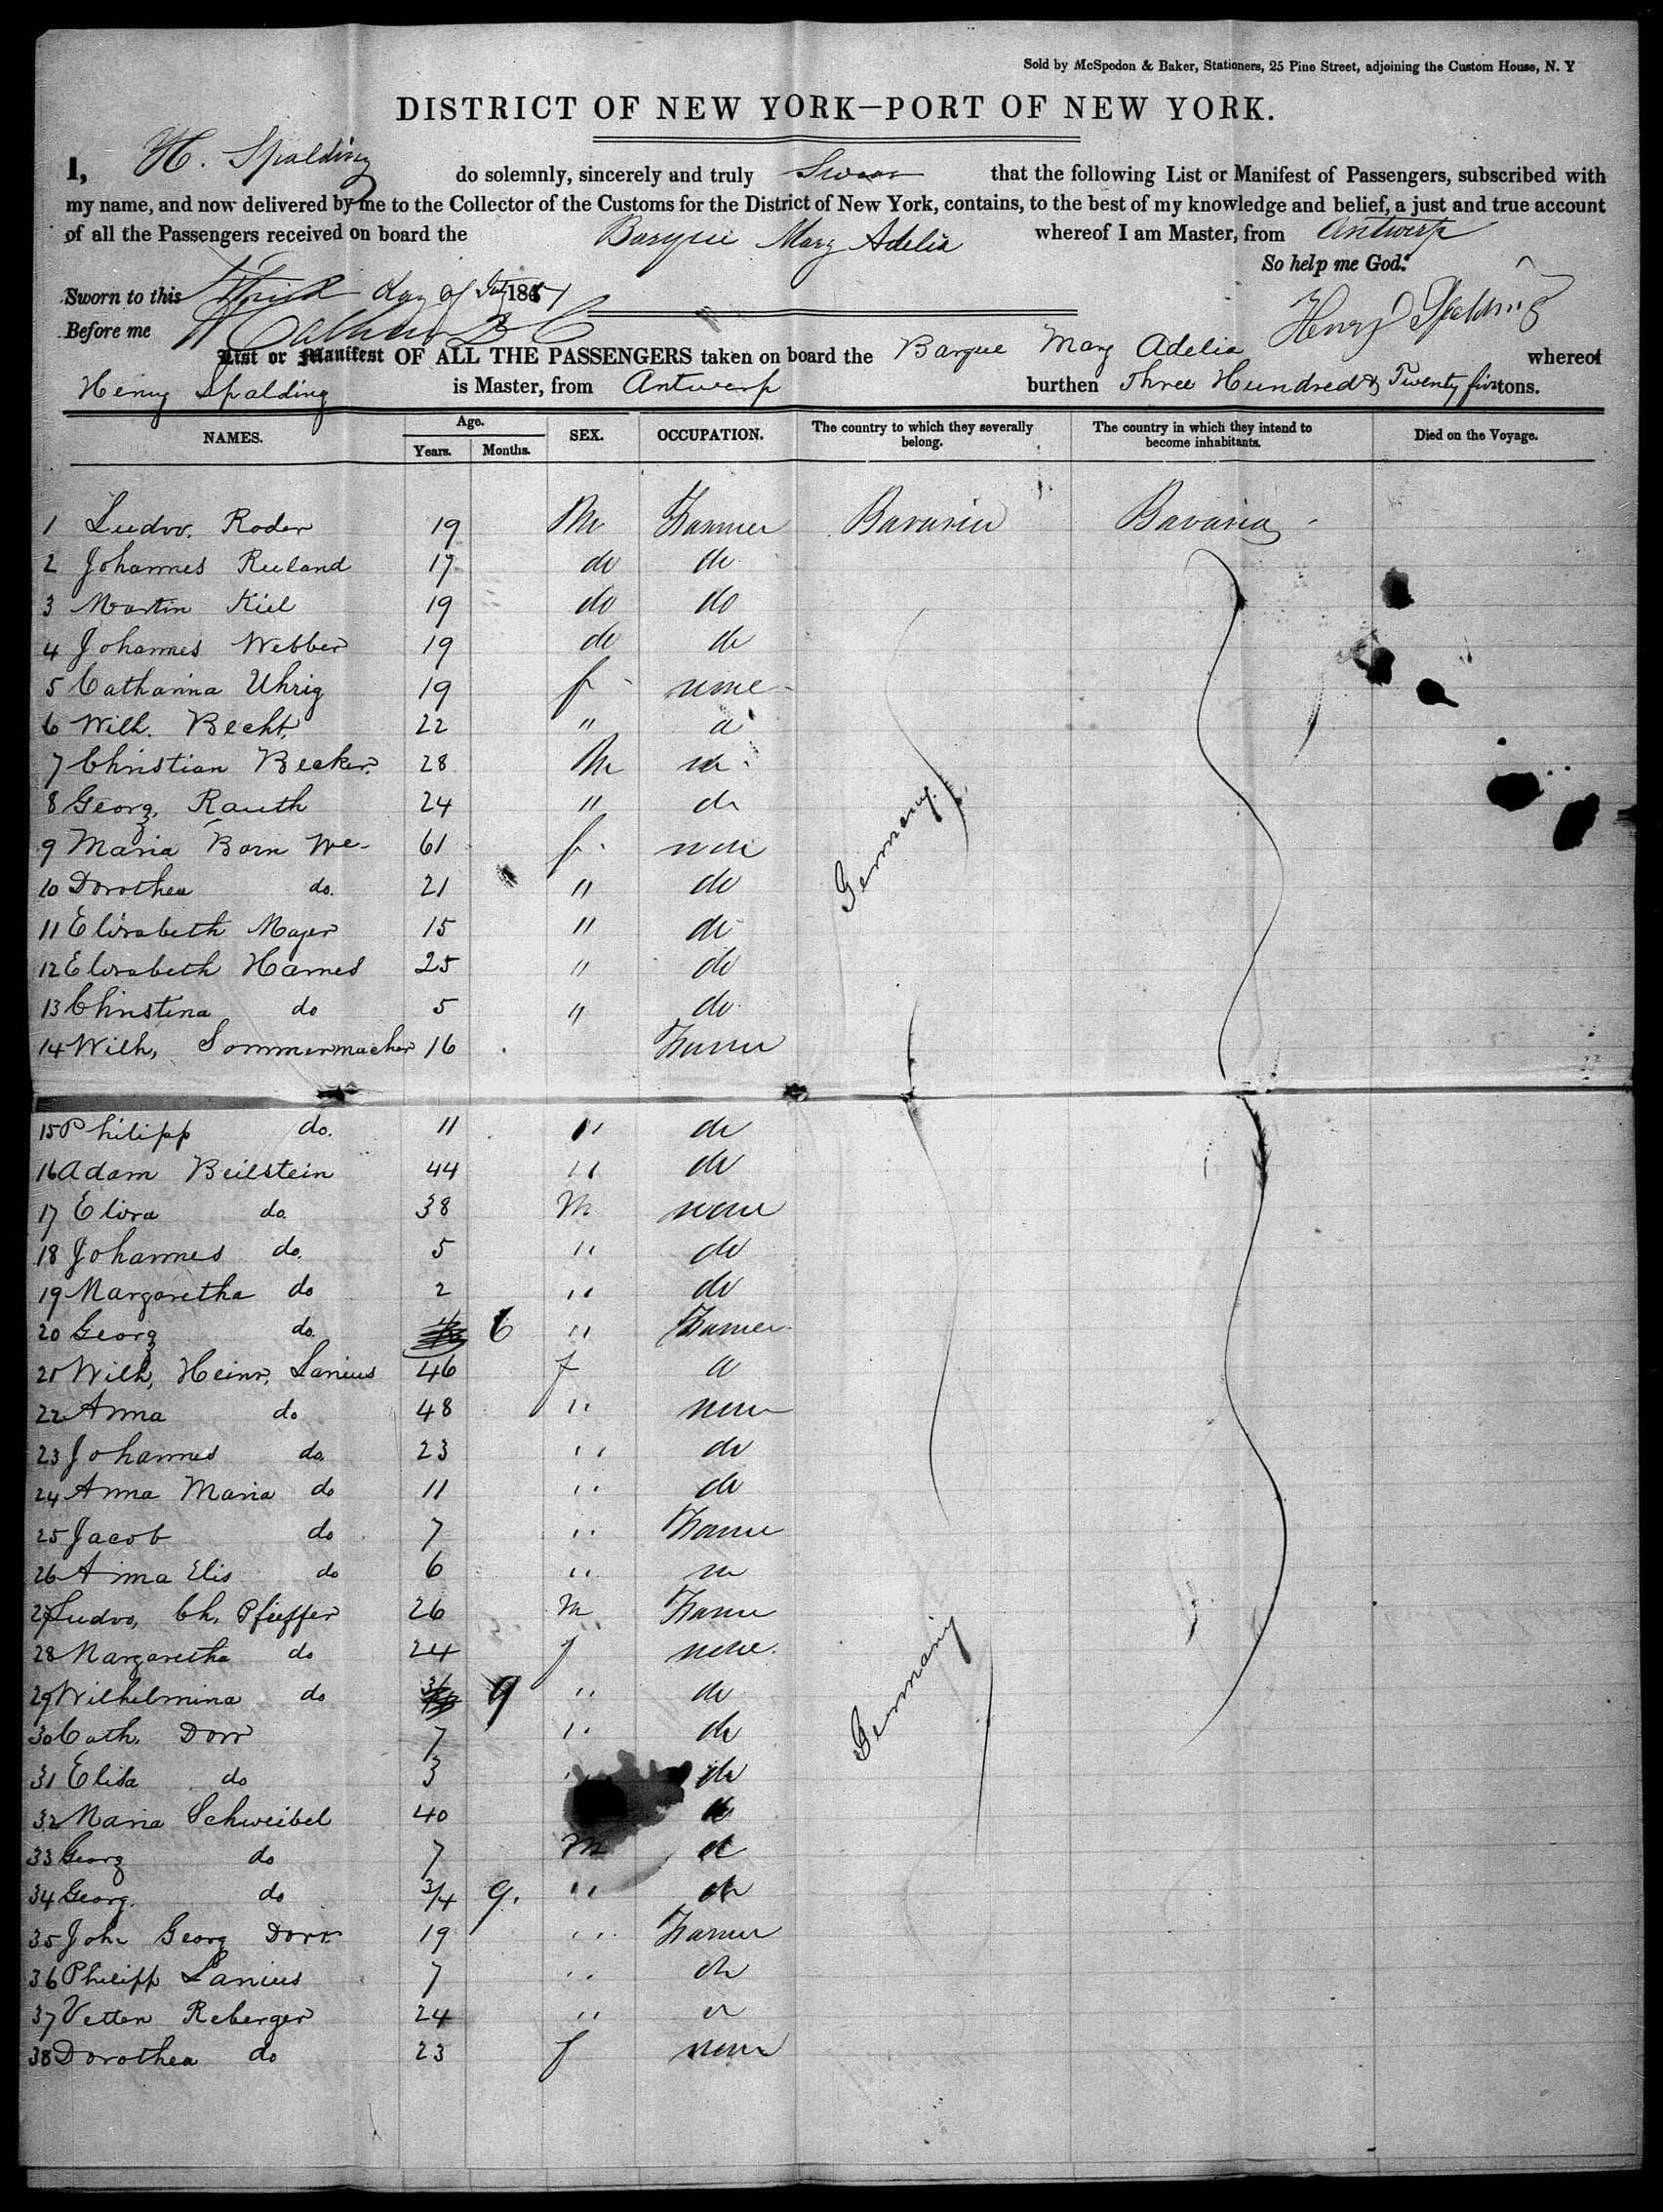 Sold by McSpedon & Baker, Stationers, 25 Pine Street, adjoining the Custom House, N. Y
DISTRICT OF NEW YORK—PORT OF NEW YORK.
I, H. Spalding do solemnly, sincerely and truly Swear that the following List or Manifest of Passengers, subscribed with
my name, and now delivered by me to the Collector of the Customs for the District of New York, contains, to the best of my knowledge and belief, a just and true account
of all the Passengers received on board the Barque Mary Adelia whereof I am Master, from Antwerp
So help me God.
Sworn to this Third day of 185
Henry Spalding
Before me
List or Manifest OF ALL THE PASSENGERS taken on board the Barque Mary Adelia whereof
Henry Spalding is Master, from Antwerp burthen Three Hundred & Twenty five tons.
NAMES. Age. Years. Months. SEX. OCCUPATION. The country to which they severally belong. The country in which they intend to become inhabitants. Died on the Voyage.
1 Ludw. Roder 19 M Farmer Bavaria Bavaria
2 Johannes Ruland 17 do do
3 Martin Kiel 19 do do
4 Johannes Webber 19 do do
5 Catharina Uhrig 19 f none
6 Wilh. Becht 22 "
7 Christian Becker. 28 M
8 Georg, Rauth 24 " do
9 Maria Born We- 61 f. none
10 Dorothea do. 21 " do
11 Elisabeth Mayer 15 " do
12 Elisabeth Hames 25 " do
13 Christina do 5 " do
14 Wilh, Sommermacher 16 Farmer
Germany.
15 Philipp do. 11 " do
16 Adam Beilstein 44 " do
17 Elisa do. 38 M none
18 Johannes do. 5 " do
19 Margaretha do 2 " do
20 Georg do. 6 " Farmer
21 Wilh, Heinr, Lanius 46 f
22 Anna do 48 " none
23 Johannes do. 23 " do
24 Anna Maria do 11 " do
25 Jacob do 7 " Farmer
26 Anna Elis do 6 "
27 Ludw, Ch, Pfieffer 26 M Farmer
28 Margaretha do 24 f none.
29 Wilhelmina do 9 " do
30 Cath. Dorr 7 " do
31 Elisa do 3 " do
32 Maria Schweibel 40
33 Georg do 7 M
34 Georg. do 3/4 9. "
35 Joh Georg Dorr 19 " Farmer
36 Philipp Lanius 7 "
37 Vetten Reberger 24 "
38 Dorothea do 23 f none
Germany